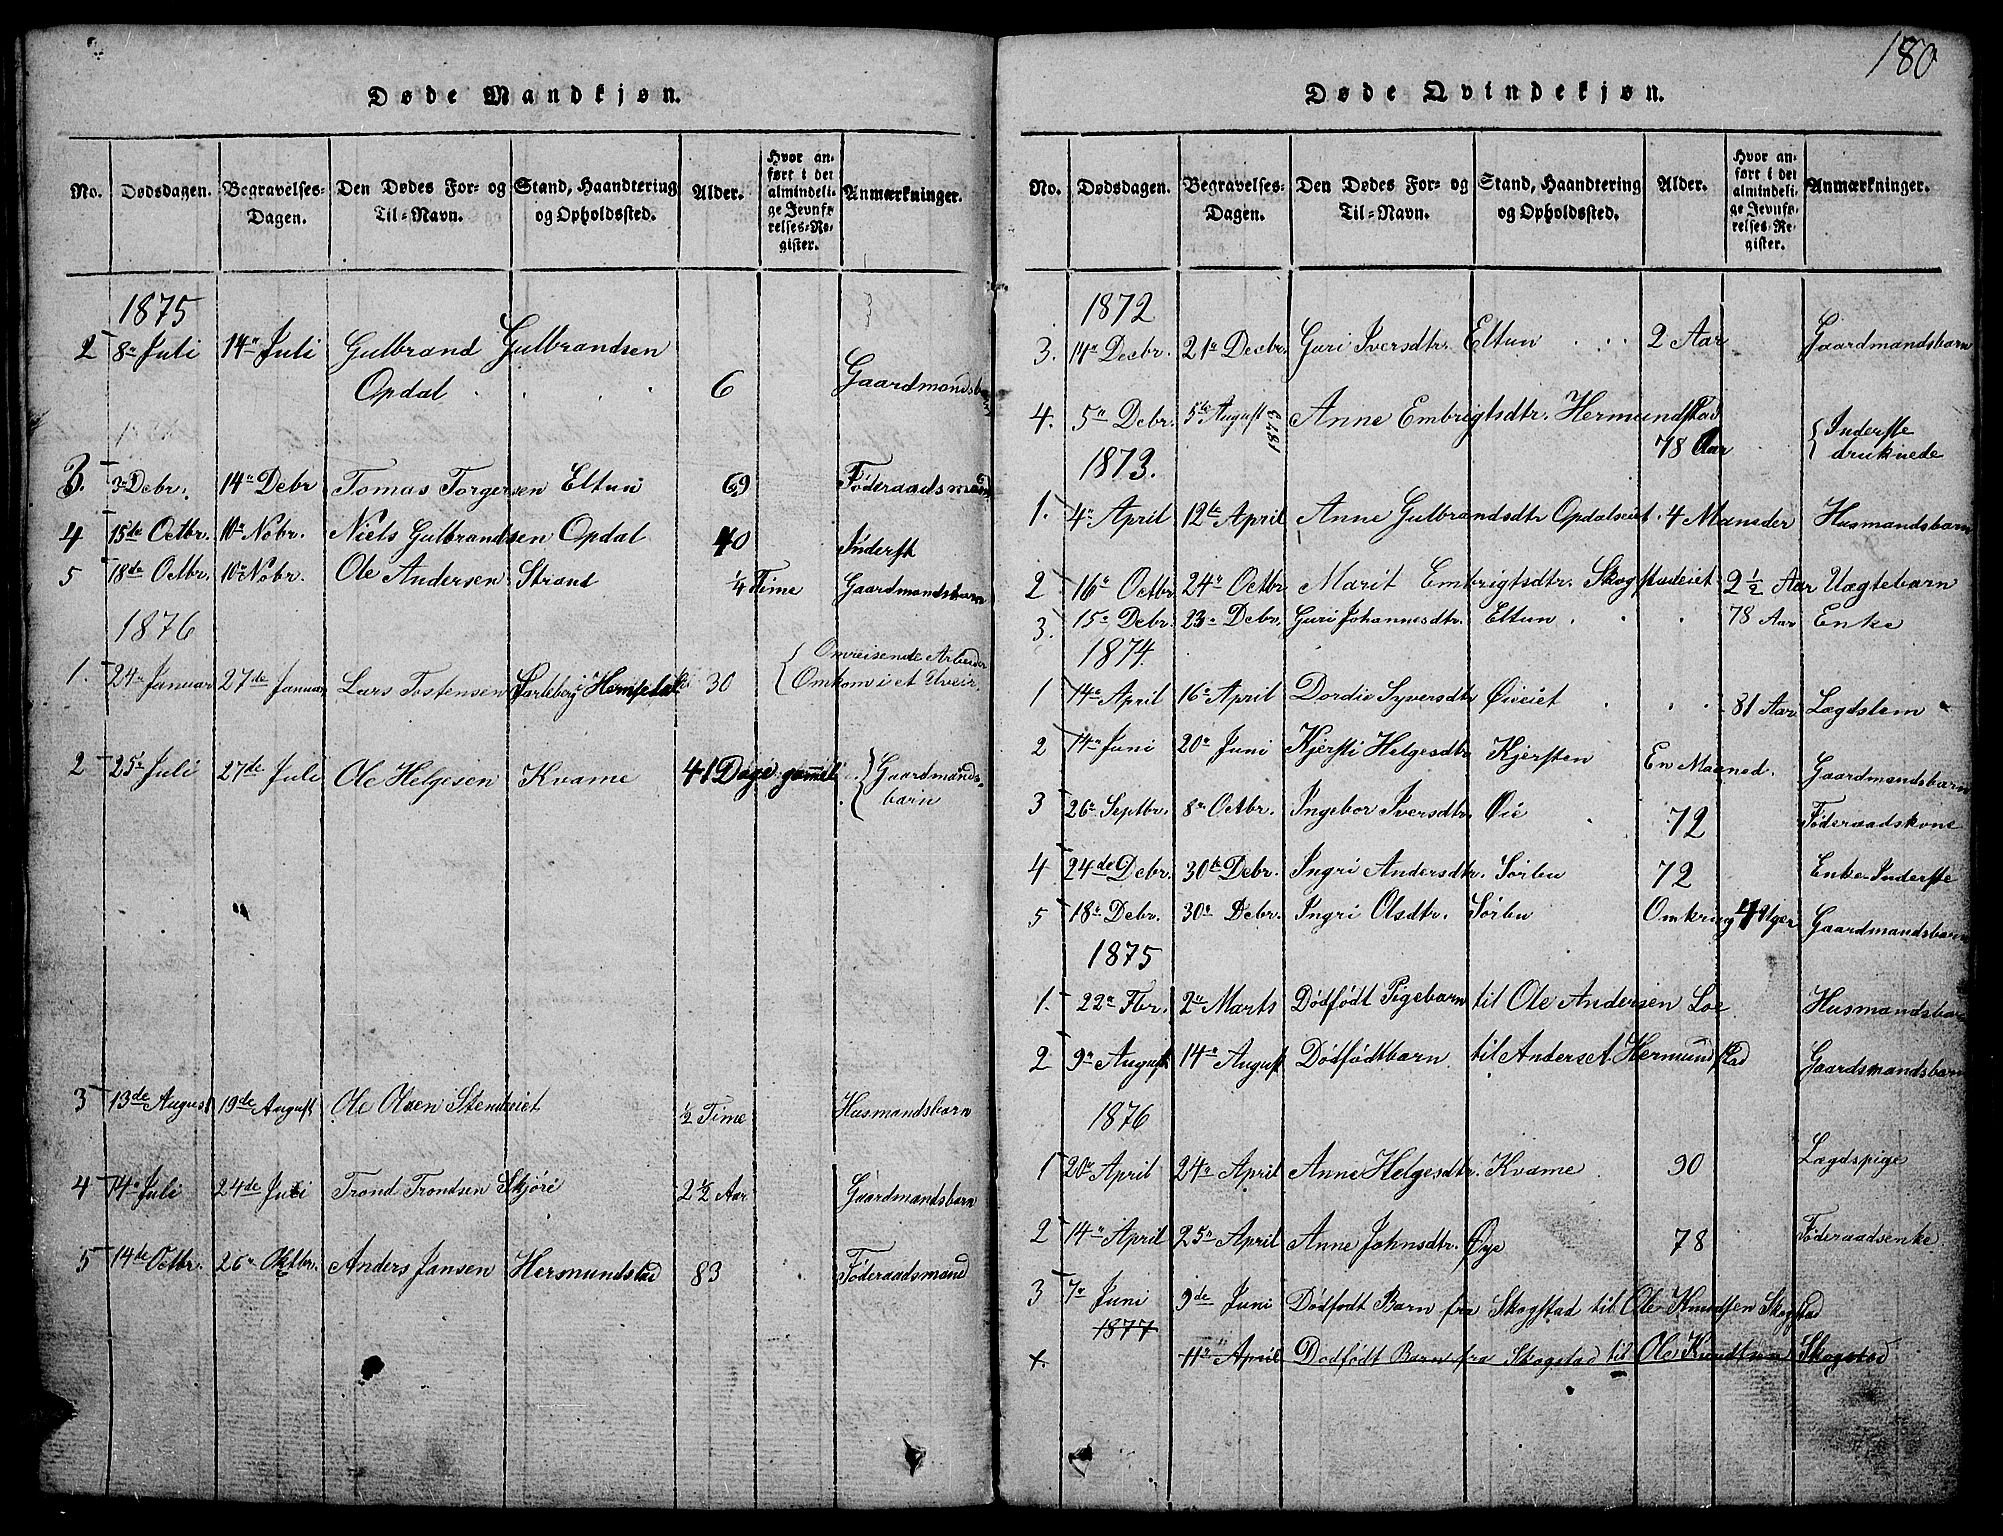 180
Døde Mandkjøn.
No. Dødsdagen. Begravelses-Dagen. Den Dødes For- og Til-Navn. Stand, Haandtering og Opholdssted. Alder. Hvor anført i det almindelige Jevnførelses-Register. Anmærkninger.
1875
2 8de Juli 14de Juli Gulbrand Gulbrandsen
Opdal 6 Gaardmandsb
3. 3 Debr. 14 Debr Tomas Torgersen Eltun 69 Føderaadsmand
4 15de Octbr. 10 Nobr. Niels Gulbrandsen Opdal 40 Inderst
5 18de Octbr. 10 Nobr. Ole Andersen Strand 1/4 Time Gaardmandsbarn
1876
1. 24 Januar 27de Januar Lars Tostensen Hemsedal 30 Omreisende Arbeider
Omkom i et Uveir.
2 25 Juli 27de Juli Ole Helgesen Kvame 41 Dage gammel Gaardmands-
barn
3 13de August 19de August Ole Olsen Stendeiet 1/2 Time Husmandsbarn
4 14 Juli 24de Juli Trond Trondsen Skjøri 2 1/2 Aar Gaardmandsbarn
5 14de Octbr. 26 Oktbr. Anders Jansen Hermundstad 83 Føderaadsmand
Døde Qvindekjøn.
No. Dødsdagen. Begravelses-Dagen. Den Dødes For- og Til-Navn. Stand, Haandtering og Opholdssted. Alder. Hvor anført i det almindelige Jevnførelses-Register. Anmærkninger.
1872
3. 14 Decbr. 21 Decbr. Guri Iversdtr. Eltun 2 Aar Gaardmandsbarn
4. 5 Debr. 5te August 1873 Anne Embrigtsdtr. Hermundstad
78 Aar Inderste
druknede
1873.
1. 4 April 12te April Anne Gulbrandsdtr Opdalseiet. 4 Maneder Husmandsbarn
2 16 Octbr 24 Octbr Marit Embrigtsdtr. Skogstadeiet 2 1/2 Aar Vægtebarn
3. 15 Debr. 23 Debr. Guri Johannesdtr. Eltun 78 Aar Enke
1874.
1 14 April 16 April Dordie Syversdtr Øieiet 81 Aar Lægdslem
2 14 Juni 20 Juni Kjersti Helgesdtr Kjersten En Maaned. Gaardmandsbarn
3 26 Septbr. 8 Octbr. Ingebor Iversdtr. Øie 72 Føderaadskone
4 24de Debr. 30te Debr. Ingri Andersdtr. Sørbu 72 Enke-Inderste
5 18 Debr. 30 Debr. Ingri Olsdtr. Sørbu Omkring 4 Uger Gaardmandsbarn
1875
1. 22 Fbr. 2 Marts Dødfødt Pigebarn til Ole Andersen Loe Husmandsbarn
2 9 August 14 August Dødfødtbarn til Anders Hermundstad Gaardsmandsbarn
1876
1 20 April 24 April Anne Helgesdtr. Kvame 30 Lægdspige
2 14 April 25 April Anne Johnsdtr. Øye 78 Føderaadsenke
3 7 Juni 9de Juni Dødfødt Barn fra Skogstad til Ole Knudsen Skogstad
1877
x. 11 April Dødfødt Barn fra Skogstad til Ole Knudsen Skogstad